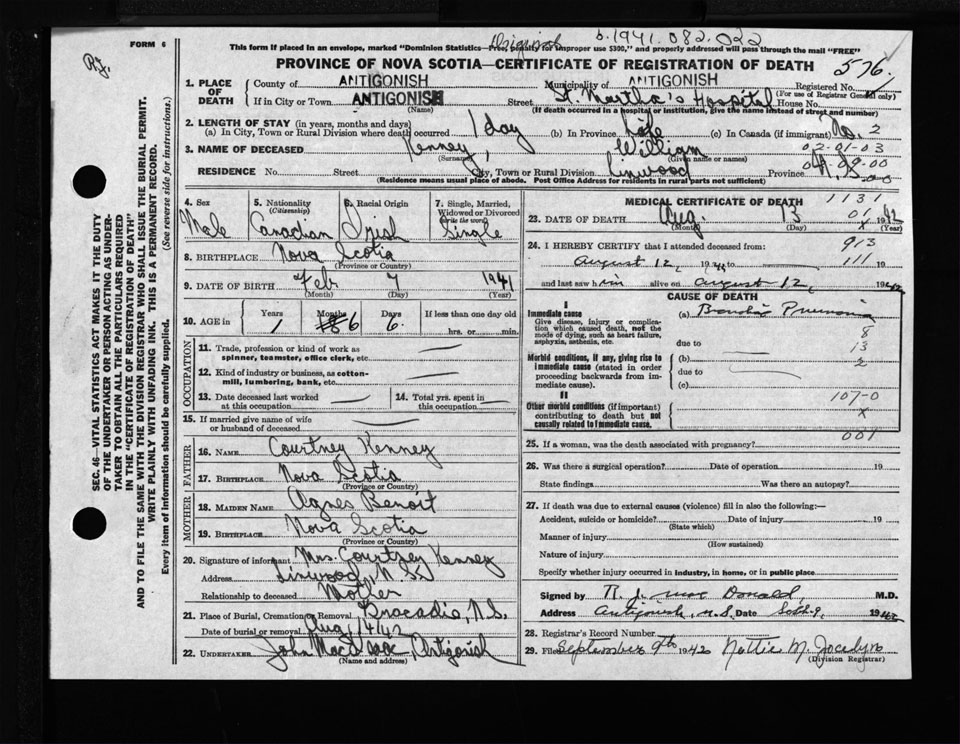 b. 1941.082.022
FORM 6
Original
This form if placed in an envelope, marked "Dominion Statistics—Free, penalty for improper use $300," and properly addressed will pass through the mail "FREE"
PROVINCE OF NOVA SCOTIA—CERTIFICATE OF REGISTRATION OF DEATH
576
1. PLACE OF DEATH
County of ANTIGONISH Municipality of ANTIGONISH Registered No.
(For use of Registrar General only)
If in City or Town ANTIGONISH Street St. Martha's Hospital House No.
(Name) (If death occurred in a hospital or institution, give the name instead of street and number)
2. LENGTH OF STAY (in years, months and days)
(a) In City, Town or Rural Division where death occurred 1 day (b) In Province Life (c) In Canada (if immigrant) No. 2
3. NAME OF DECEASED Kenney, William 02-01-03
(Surname) (Given name or names)
RESIDENCE No. Street City, Town or Rural Division Linwood Province N.S.
(Residence means usual place of abode. Post Office Address for residents in rural parts not sufficient)
4. Sex Male
5. Nationality (Citizenship) Canadian
6. Racial Origin Irish
7. Single, Married, Widowed or Divorced (write the word) Single
8. BIRTHPLACE Nova Scotia
(Province or Country)
9. DATE OF BIRTH Feb 7 1941
(Month) (Day) (Year)
10. AGE in Years 1 Months 6 Days 6 If less than one day old
hrs. or min.
OCCUPATION
11. Trade, profession or kind of work as spinner, teamster, office clerk, etc.
12. Kind of industry or business, as cotton-mill, lumbering, bank, etc.
13. Date deceased last worked at this occupation
14. Total yrs. spent in this occupation
15. If married give name of wife or husband of deceased
FATHER
16. NAME Courtney Kenney
17. BIRTHPLACE Nova Scotia
(Province or Country)
MOTHER
18. MAIDEN NAME Agnes Benoit
19. BIRTHPLACE Nova Scotia
(Province or Country)
20. Signature of informant Mrs. Courtney Kenney
Address Linwood, N.S.
Relationship to deceased Mother
21. Place of Burial, Cremation or Removal Tracadie, N.S.
Date of burial or removal Aug 14/42
22. UNDERTAKER John MacIsaac Antigonish
(Name and address)
MEDICAL CERTIFICATE OF DEATH 1131
23. DATE OF DEATH Aug. 13 1942
01
(Month) (Day) (Year)
24. I HEREBY CERTIFY that I attended deceased from: 913
August 12, 1942 to 111 19
and last saw him alive on August 12, 1942
CAUSE OF DEATH
I
Immediate cause
Give disease, injury or complication which caused death, not the mode of dying, such as heart failure, asphyxia, asthenia, etc.
(a) Broncho Pneumonia
due to
8
13
2
Morbid conditions, if any, giving rise to immediate cause (stated in order proceeding backwards from immediate cause).
(b)
due to
(c)
II
Other morbid conditions (if important) contributing to death but not causally related to immediate cause.
107-0
x
001
25. If a woman, was the death associated with pregnancy?
26. Was there a surgical operation? Date of operation 19
State findings Was there an autopsy?
27. If death was due to external causes (violence) fill in also the following:—
Accident, suicide or homicide? Date of injury 19
(State which)
Manner of injury
(How sustained)
Nature of injury
Specify whether injury occurred in industry, in home, or in public place
Signed by MacDonald, M.D.
Address Antigonish, N.S. Date Sept. 9, 1942
28. Registrar's Record Number
29. Filed September 9th 1942 Nettie M. Jocelyn
(Division Registrar)
SEC. 46—VITAL STATISTICS ACT MAKES IT THE DUTY
OF THE UNDERTAKER OR PERSON ACTING AS UNDER-
TAKER TO OBTAIN ALL THE PARTICULARS REQUIRED
IN THE "CERTIFICATE OF REGISTRATION OF DEATH"
AND TO FILE THE SAME WITH THE DIVISION REGISTRAR WHO SHALL ISSUE THE BURIAL PERMIT.
WRITE PLAINLY WITH UNFADING INK. THIS IS A PERMANENT RECORD.
Every item of information should be carefully supplied. (See reverse side for instructions.)